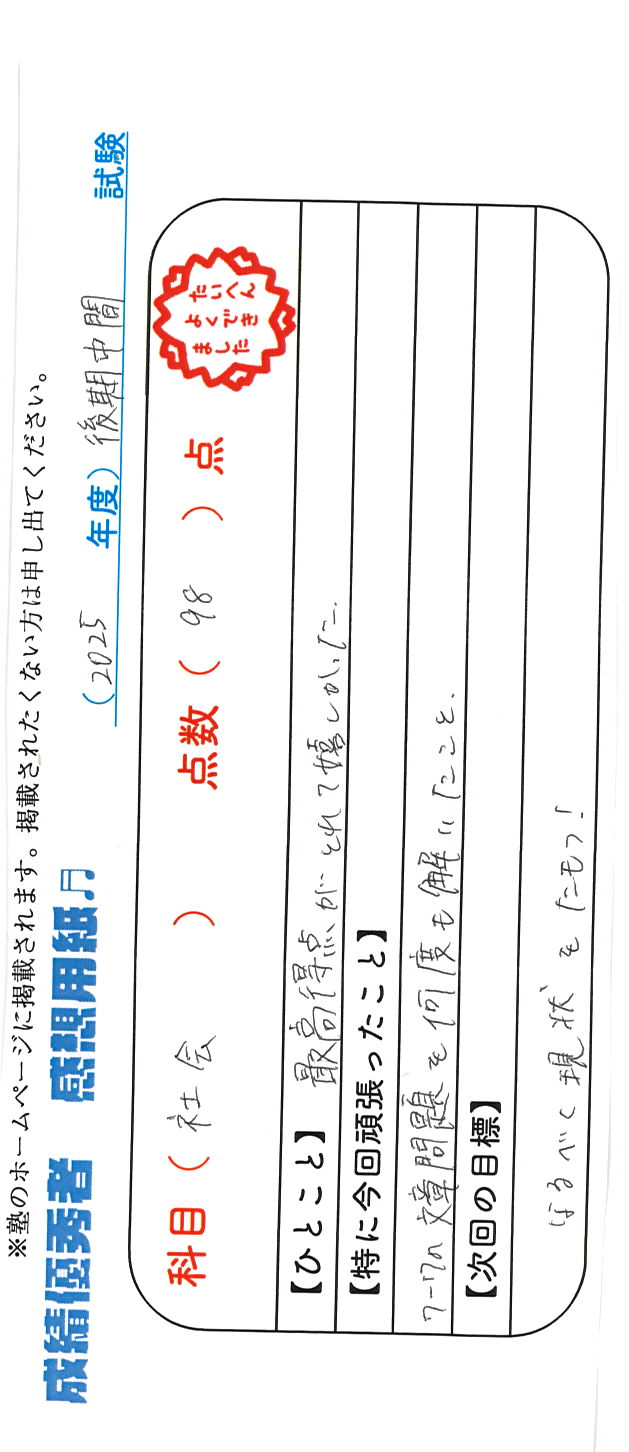 ※塾のホームページに掲載されます。掲載されたくない方は申し出てください。
成績優秀者 感想用紙♫
(2025 年度) 後期中間 試験
科目 ( 社会 ) 点数 ( 98 ) 点
たいへん
よくでき
ました
【ひとこと】 最高得点がとれて嬉しかった。
【特に今回頑張ったこと】
ワークの文章問題を何度も解いたこと。
【次回の目標】
なるべく現状をたもつ!